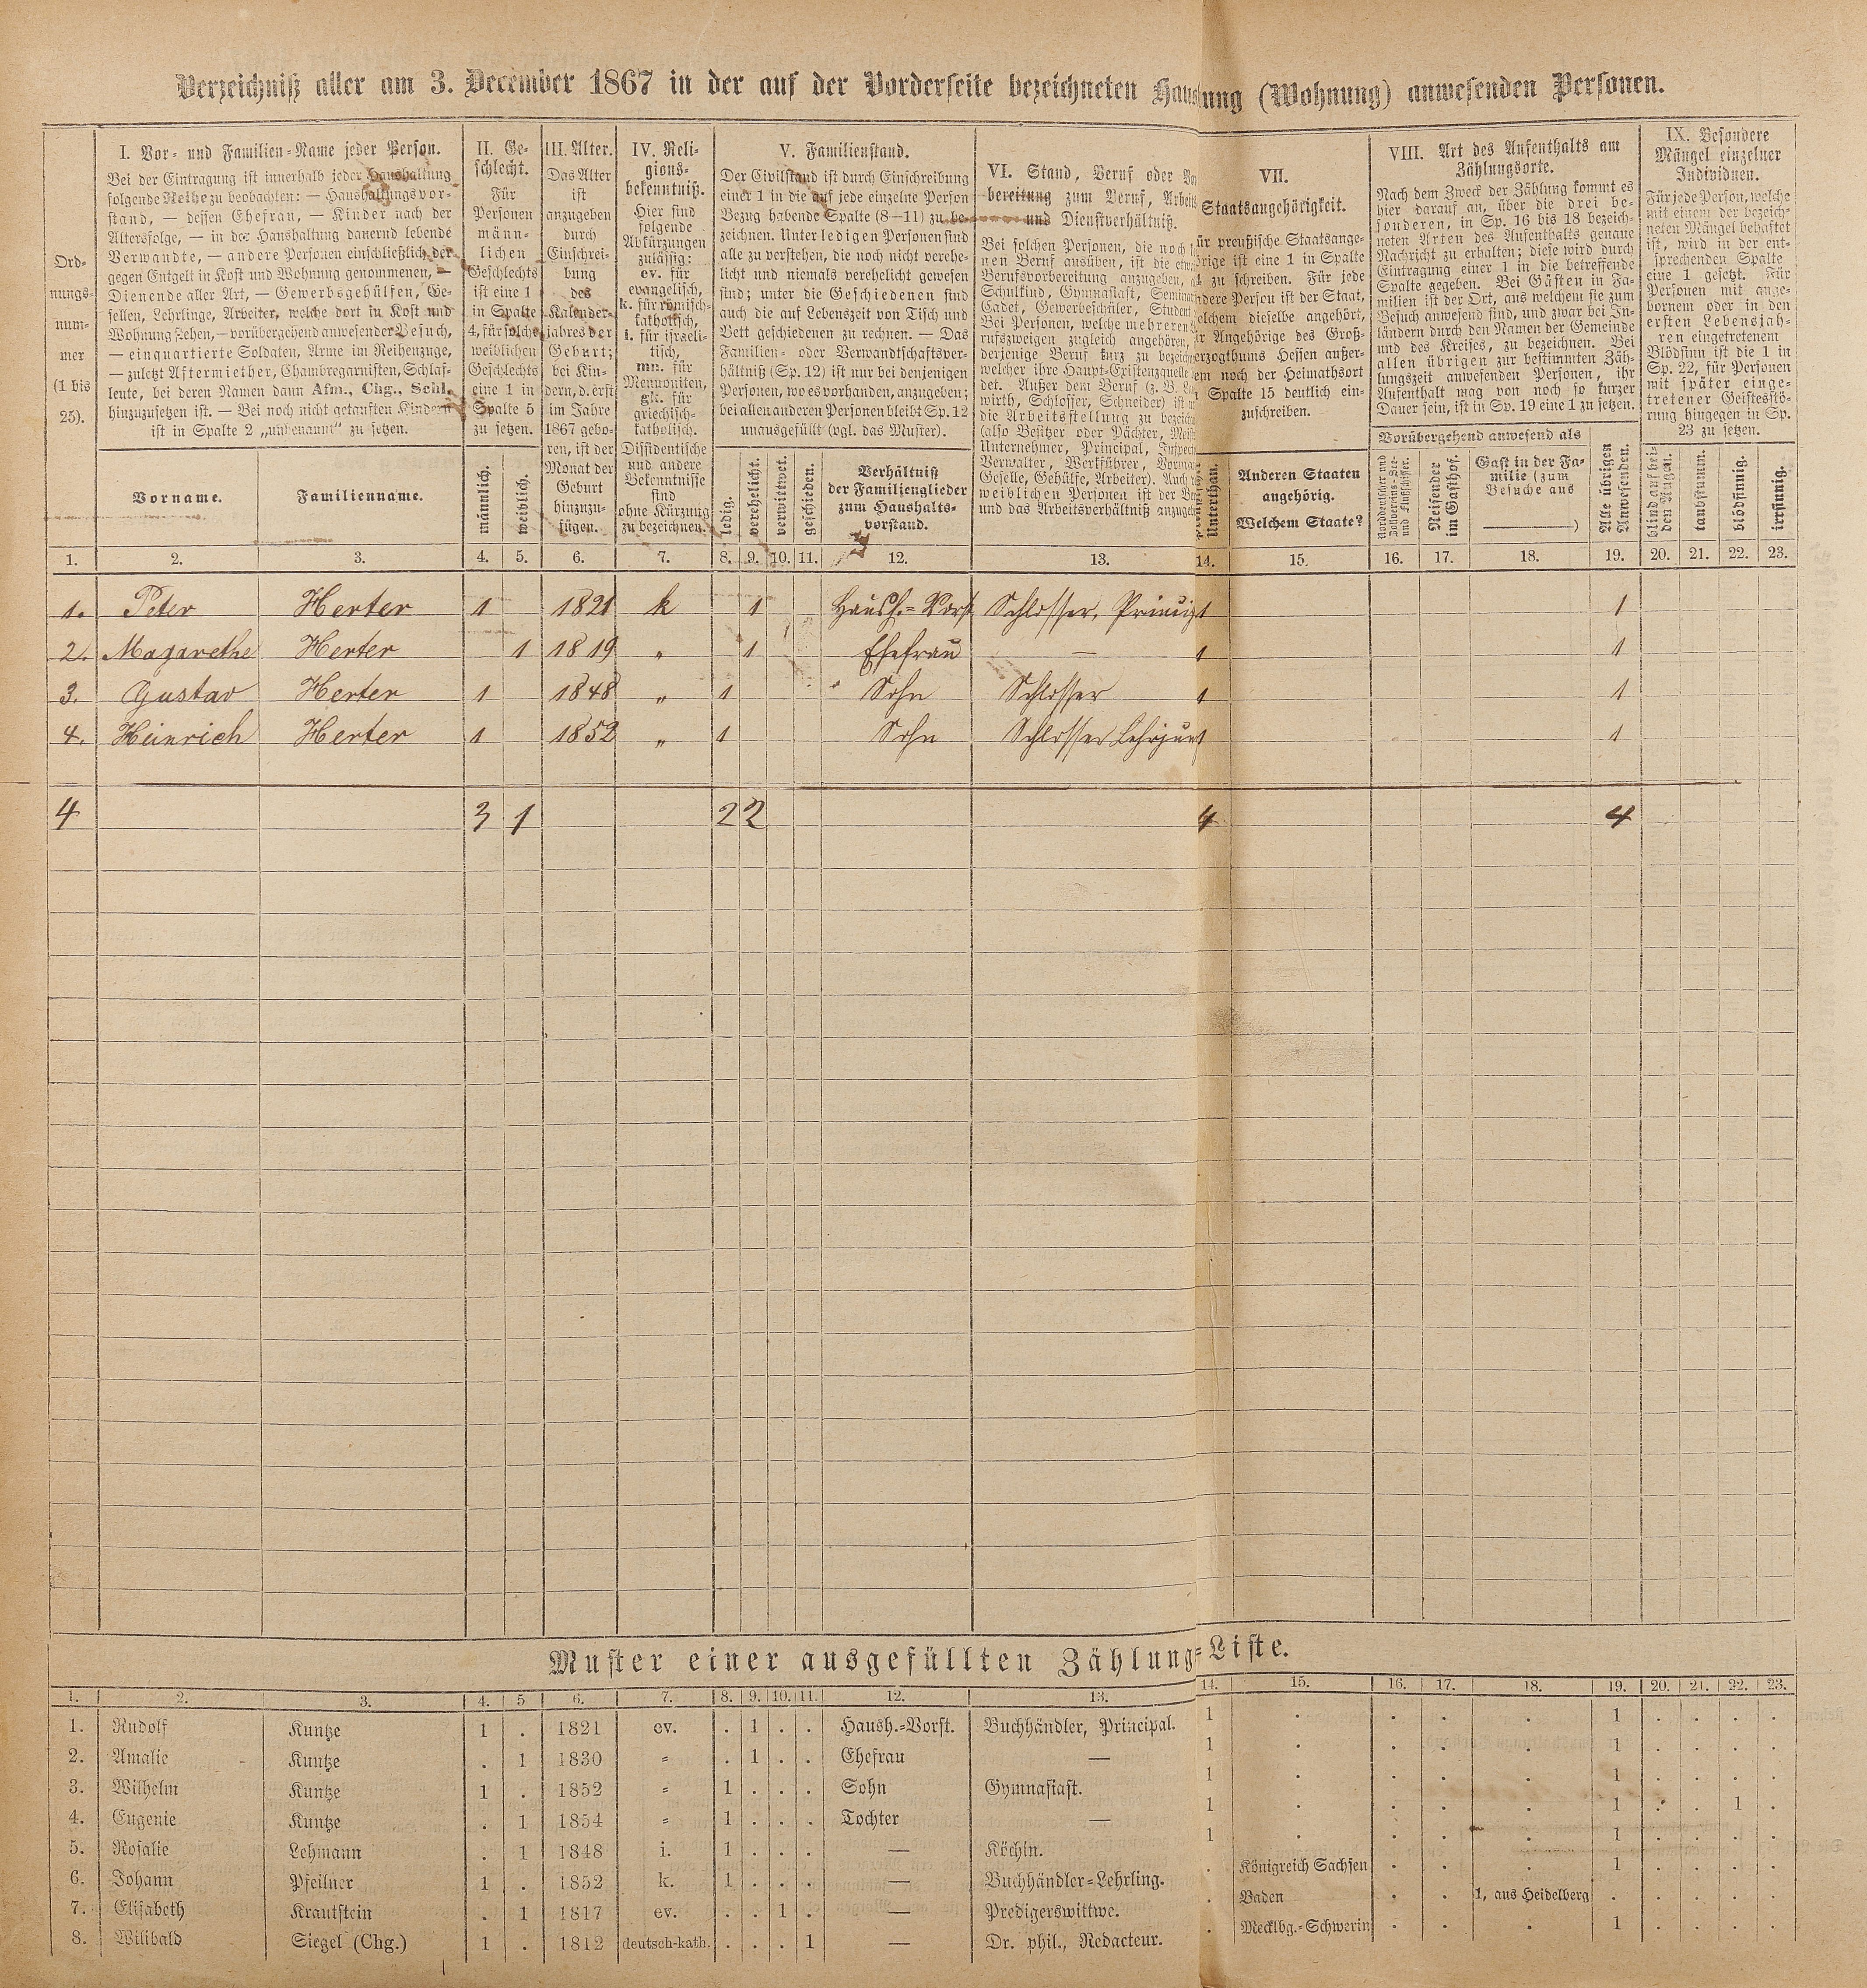 Verzeichniß aller am 3. December 1867 in der auf der Vorderseite bezeichneten Haushaltung (Wohnung) anwesenden Personen.
Ord-
nungs-
num-
mer
(1 bis
25).
I. Vor- und Familien-Name jeder Person.
Bei der Eintragung ist innerhalb jeder Haushaltung
folgende Reihe zu beobachten: — Haushaltungsvor-
stand, — dessen Ehefrau, — Kinder nach der
Altersfolge, — in der Haushaltung dauernd lebende
Verwandte, — andere Personen einschließlich der
gegen Entgelt in Kost und Wohnung genommenen, —
Dienende aller Art, — Gewerbsgehülfen, Ge-
sellen, Lehrlinge, Arbeiter, welche dort in Kost und
Wohnung stehen, — vorübergehend anwesender Besuch,
— einquartierte Soldaten, Arme im Reihenzuge,
— zuletzt Aftermiether, Chambregarnisten, Schlaf-
leute, bei deren Namen dann Afm., Chg., Schl.
hinzuzusetzen ist. — Bei noch nicht getauften Kindern
ist in Spalte 2 „unbenannt“ zu setzen.
Vorname.
Familienname.
II. Ge-
schlecht.
Für
Personen
männ-
lichen
Geschlechts
ist eine 1
in Spalte
4, für solche
weiblichen
Geschlechts
eine 1 in
Spalte 5
zu setzen.
männlich.
weiblich.
III. Alter.
Das Alter
ist
anzugeben
durch
Einschrei-
bung
des
Kalender-
jahres der
Geburt;
bei Kin-
dern, d. erst
im Jahre
1867 gebo-
ren, ist der
Monat der
Geburt
hinzuzu-
fügen.
IV. Reli-
gions-
bekenntniß.
Hier sind
folgende
Abkürzungen
zulässig:
ev. für
evangelisch,
k. für römisch-
katholisch,
i. für israeli-
tisch,
mn. für
Mennoniten,
gk. für
griechisch-
katholisch.
Dissidentische
und andere
Bekenntnisse
sind
ohne Kürzung
zu bezeichnen.
V. Familienstand.
Der Civilstand ist durch Einschreibung
einer 1 in die auf jede einzelne Person
Bezug habende Spalte (8—11) zu be-
zeichnen. Unter ledigen Personen sind
alle zu verstehen, die noch nicht verehe-
licht und niemals verehelicht gewesen
sind; unter die Geschiedenen sind
auch die auf Lebenszeit von Tisch und
Bett geschiedenen zu rechnen. — Das
Familien- oder Verwandtschaftsver-
hältniß (Sp. 12) ist nur bei denjenigen
Personen, wo es vorhanden, anzugeben;
bei allen anderen Personen bleibt Sp. 12
unausgefüllt (vgl. das Muster).
ledig.
verehelicht.
verwittwet.
geschieden.
Verhältniß
der Familienglieder
zum Haushalts-
vorstand.
VI. Stand, Beruf oder Vor
bereitung zum Beruf, Arbeits
und Dienstverhältniß.
Bei solchen Personen, die noch
nen Beruf ausüben, ist die etwa
Berufsvorbereitung anzugeben,
Schulkind, Gymnasiast, Seminar
Cadet, Gewerbeschüler, Student
Bei Personen, welche mehreren
rufszweigen zugleich angehören,
derjenige Beruf kurz zu bezeich
welcher ihre Haupt-Existenzquelle
det. Außer dem Beruf (z. B. L
wirth, Schlosser, Schneider) ist
die Arbeitsstellung zu bezeich
(also Besitzer oder Pächter, Meist
Unternehmer, Principal, Inspect
Verwalter, Werkführer, Vorman
Geselle, Gehülfe, Arbeiter). Auch
weiblichen Personen ist der Be
und das Arbeitsverhältniß anzugeb
VII.
Staatsangehörigkeit.
ür preußische Staatsange-
örige ist eine 1 in Spalte
zu schreiben. Für jede
ndere Person ist der Staat,
elchem dieselbe angehört,
r Angehörige des Groß-
erzogthums Hessen außer-
em noch der Heimathsort
Spalte 15 deutlich ein-
zuschreiben.
Unterthan.
Anderen Staaten
angehörig.
Welchem Staate?
VIII. Art des Aufenthalts am
Zählungsorte.
Nach dem Zweck der Zählung kommt es
hier darauf an, über die drei be-
sonderen, in Sp. 16 bis 18 bezeich-
neten Arten des Aufenthalts genaue
Nachricht zu erhalten; diese wird durch
Eintragung einer 1 in die betreffende
Spalte gegeben. Bei Gästen in Fa-
milien ist der Ort, aus welchem sie zum
Besuch anwesend sind, und zwar bei In-
ländern durch den Namen der Gemeinde
und des Kreises, zu bezeichnen. Bei
allen übrigen zur bestimmten Zäh-
lungszeit anwesenden Personen, ihr
Aufenthalt mag von noch so kurzer
Dauer sein, ist in Sp. 19 eine 1 zu setzen.
Vorübergehend anwesend als
Norddeutscher und
Zollvereins-See-
und Flußschiffer.
Reisender
im Gasthof.
Gast in der Fa-
milie (zum
Besuche aus
)
Alle übrigen
Anwesenden.
IX. Besondere
Mängel einzelner
Individuen.
Für jede Person, welche
mit einem der bezeich-
neten Mängel behaftet
ist, wird in der ent-
sprechenden Spalte
eine 1 gesetzt. Für
Personen mit ange-
bornem oder in den
ersten Lebensjah-
ren eingetretenem
Blödsinn ist die 1 in
Sp. 22, für Personen
mit später einge-
tretener Geistesstö-
rung hingegen in Sp.
23 zu setzen.
blind auf bei-
den Augen.
taubstumm.
blödsinnig.
irrsinnig.
1. 2. 3. 4. 5. 6. 7. 8. 9. 10. 11. 12. 13. 14. 15. 16. 17. 18. 19. 20. 21. 22. 23.
1. Peter Herter 1 1821 k 1 Haush.-Vorst Schlosser, Princip 1 1
2. Magarethe Herter 1 1819 „ 1 Ehefrau — 1 1
3. Gustav Herter 1 1848 „ 1 Sohn Schlosser 1 1
4. Heinrich Herter 1 1852 „ 1 Sohn Schlosser Lehrjun 1 1
4 3 1 2 2 4 4
Muster einer ausgefüllten Zählungs-Liste.
1. 2. 3. 4. 5 6. 7. 8. 9. 10. 11. 12. 13. 14. 15. 16. 17. 18. 19. 20. 21. 22. 23.
1. Rudolf Kuntze 1 . 1821 ev. . 1 . . Haush.-Vorst. Buchhändler, Principal. 1 . . . . 1 . . . .
2. Amalie Kuntze . 1 1830 = . 1 . . Ehefrau — 1 . . . . 1 . . . .
3. Wilhelm Kuntze 1 . 1852 = 1 . . . Sohn Gymnasiast. 1 . . . . 1 . . . .
4. Eugenie Kuntze . 1 1854 = 1 . . . Tochter — 1 . . . . 1 . . 1 .
5. Rosalie Lehmann . 1 1848 i. 1 . . . — Köchin. 1 . . . . 1 . . . .
6. Johann Pfeilner 1 . 1852 k. 1 . . . — Buchhändler-Lehrling. . Königreich Sachsen . . . 1 . . . .
7. Elisabeth Krautstein . 1 1817 ev. . . 1 . — Predigerswittwe. . Baden . . 1, aus Heidelberg . . . . .
8. Wilibald Siegel (Chg.) 1 . 1812 deutsch-kath. . . . 1 — Dr. phil., Redacteur. . Mecklbg.-Schwerin . . . 1 . . . .